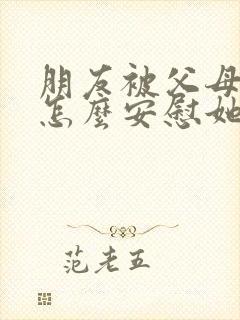 朋友被父母
怎麼安慰她
范老五